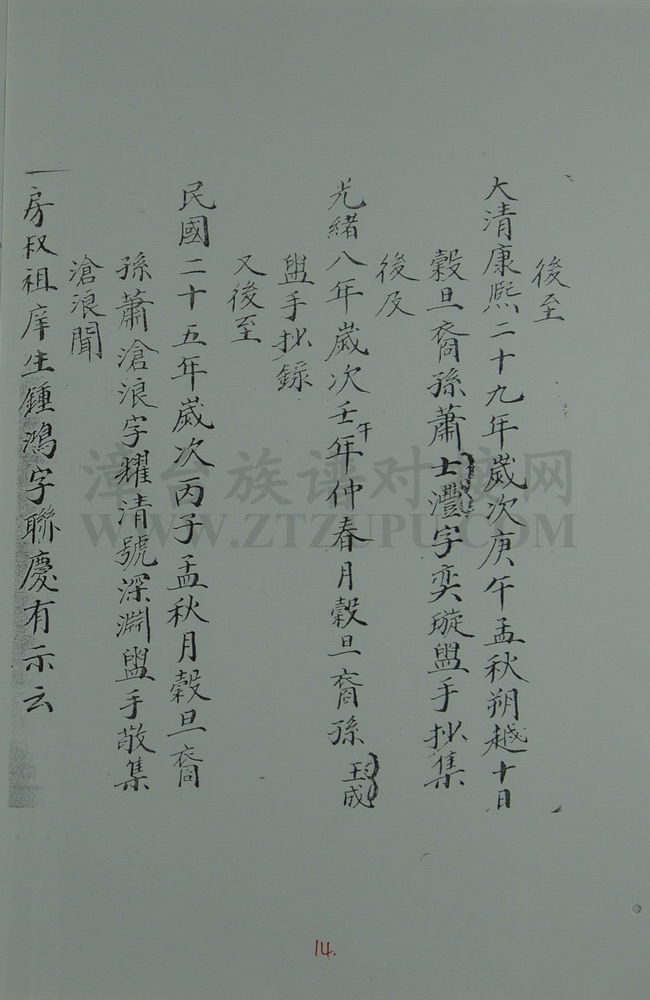 後至
大清康熙二十九年歲次庚午孟秋朔越十日
穀旦裔孫蕭士灃字奕璇盥手抄集
後及
光緒八年歲次壬午年仲春月穀旦裔孫玉成
盥手抄錄
又後至
民國二十五年歲次丙子孟秋月穀旦裔
孫蕭滄浪字耀清號深淵盥手敬集
滄浪聞
一房叔祖庠生鍾鴻字聯慶有示云
漳台族谱对接网
WWW.ZTZUPU.COM
14.